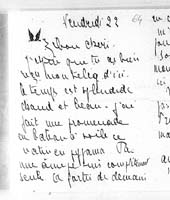 Vendredi 22
64
Zibou chéri,
j'espère que tu as bien
reçu mon teleg d'ici.
le temps est splendide
chaud et beau. j'ai
fait une promenade
en bateau à voile ce
matin en pyjama. Pa
une âme, je suis complètement
seule. Ce partir de demain